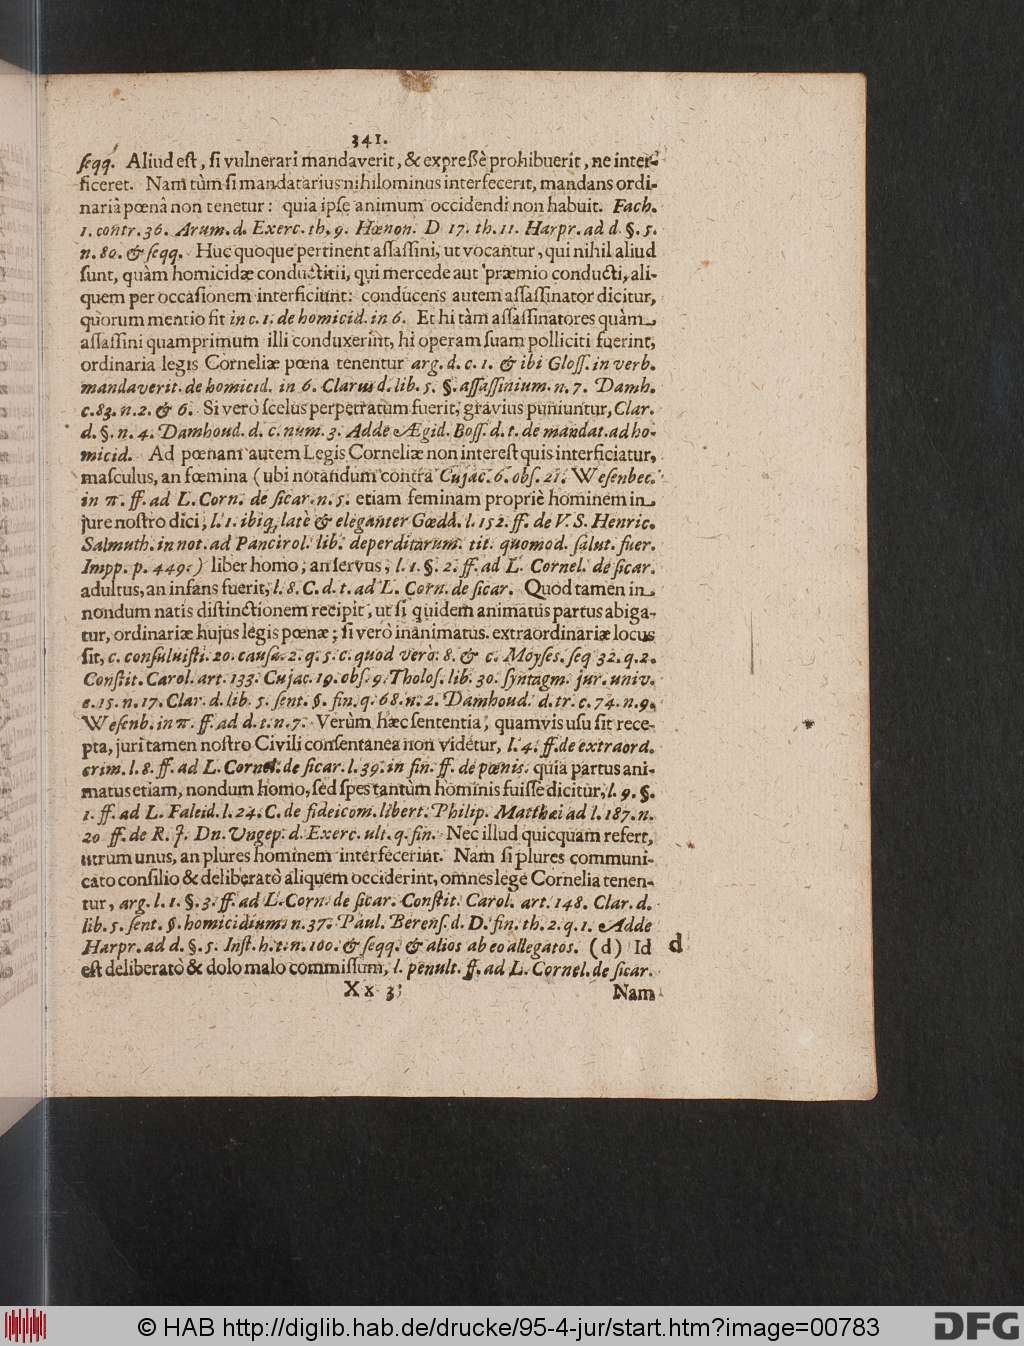 341.
seqq. Aliud est, si vulnerari mandaverit, & expreßè prohibuerit, ne inter-
ficeret. Nam tùm si mandatarius nihilominus interfecerit, mandans ordi-
nariâ pœnâ non tenetur: quia ipse animum occidendi non habuit. Fach.
1. contr. 36. Arum. d. Exerc. th. 9. Hœnon. D 17. th. 11. Harpr. ad d §. 5.
n. 80. & seqq. Huc quoque pertinent assassini, ut vocantur, qui nihil aliud
sunt, quàm homicidæ conductitii, qui mercede aut præmio conducti, ali-
quem per occasionem interficiunt: conducens autem assassinator dicitur,
quorum mentio fit in c. 1. de homicid. in 6. Et hi tàm assassinatores quàm
assassini quamprimum illi conduxerint, hi operam suam polliciti fuerint,
ordinaria legis Corneliæ pœna tenentur arg. d. c. 1. & ibi Gloss. in verb.
mandaverit. de homicid. in 6. Clarus d. lib. 5. §. assassinium. n. 7. Damh.
c. 83. n. 2. & 6. Si verò scelus perpetratum fuerit, gravius puniuntur, Clar.
d. §. n. 4. Damhoud. d. c. num. 3. Adde Ægid. Boss. d. t. de mandat. ad ho-
micid. Ad pœnam autem Legis Corneliæ non interest quis interficiatur,
masculus, an fœmina (ubi notandum contra Cujac. 6. obs. 21. Wesenbec.
in π. ff. ad L. Corn. de sicar. n. 5. etiam feminam propriè hominem in
jure nostro dici, l. 1. ibiq, latè & eleganter Gœdd. l. 152. ff. de V. S. Henric.
Salmuth. in not. ad Pancirol. lib. deperditarum. tit. quomod. salut. fuer.
Impp. p. 449.) liber homo, an servus, l. 1. §. 2. ff. ad L. Cornel. de sicar.
adultus, an infans fuerit, l. 8. C. d. t. ad L. Corn. de sicar. Quod tamen in
nondum natis distinctionem recipit, ut si quidem animatus partus abiga-
tur, ordinariæ hujus legis pœnæ; si verò inanimatus. extraordinariæ locus
sit, c. consuluisti. 20. causa. 2. q. 5. c. quod verò. 8. & c. Moyses. seq 32. q. 2.
Constit. Carol. art. 133. Cujac. 19. obs. 9. Tholos. lib. 30. syntagm. jur. univ.
c. 15. n. 17. Clar. d. lib. 5. sent. §. fin. q. 68. n. 2. Damhoud. d. tr. c. 74. n. 9.
Wesenb. in π. ff. ad d. t. n. 7. Verùm hæc sententia, quamvis usu sit rece-
pta, juri tamen nostro Civili consentanea non videtur, l. 4. ff. de extraord.
crim. l. 8. ff. ad L. Cornel. de sicar. l. 39. in fin. ff. de pœnis. quia partus ani-
matus etiam, nondum homo, sed spes tantùm hominis fuisse dicitur, l. 9. §.
1. ff. ad L. Falcid. l. 24. C. de fideicom. libert. Philip. Matthæi ad l. 187. n.
20 ff. de R. J. Dn. Ungep. d. Exerc. ult. q. fin. Nec illud quicquam refert,
utrum unus, an plures hominem interfecerint. Nam si plures communi-
cato consilio & deliberatò aliquem occiderint, omnes lege Cornelia tenen-
tur, arg. l. 1. §. 3. ff. ad L. Corn. de sicar. Constit. Carol. art. 148. Clar. d.
lib. 5. sent. §. homicidium. n. 37. Paul. Berens. d. D. fin. th. 2. q. 1. Adde
Harpr. ad d. §. 5. Inst. h. t. n. 100. & seqq. & alios ab eo allegatos. (d) Id d
est deliberatò & dolo malo commissum, l. penult. ff. ad L. Cornel. de sicar.
Xx 3 Nam
© HAB http://diglib.hab.de/drucke/95-4-jur/start.htm?image=00783
DFG